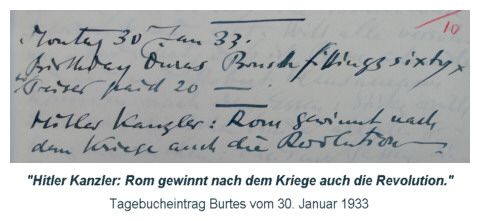 10
Montag 30 Jan 33.
Birthday
paid 20 —
Hitler Kanzler: Rom gewinnt nach
dem Kriege auch die Revolution
"Hitler Kanzler: Rom gewinnt nach dem Kriege auch die Revolution."
Tagebucheintrag Burtes vom 30. Januar 1933